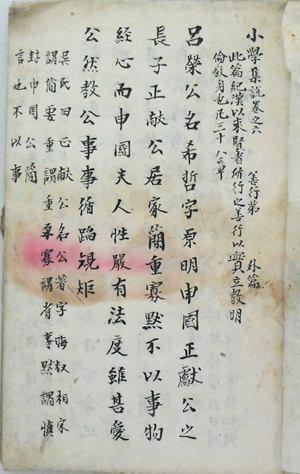 小學集說卷之六
善行第 外篇
此篇紀漢以來賢者所行之善行以實立敎明
倫敬身也凡三十八章
呂榮公名希哲字原明申國正獻公之
長子正獻公居家簡重寡默不以事物
經心而申國夫人性嚴有法度雖甚愛
公然敎公事事循蹈規矩
吳氏曰正獻公名公著字晦叔相宋
封申國公簡
謂簡要重謂重厚寡謂省事默謂愼
言也不以事